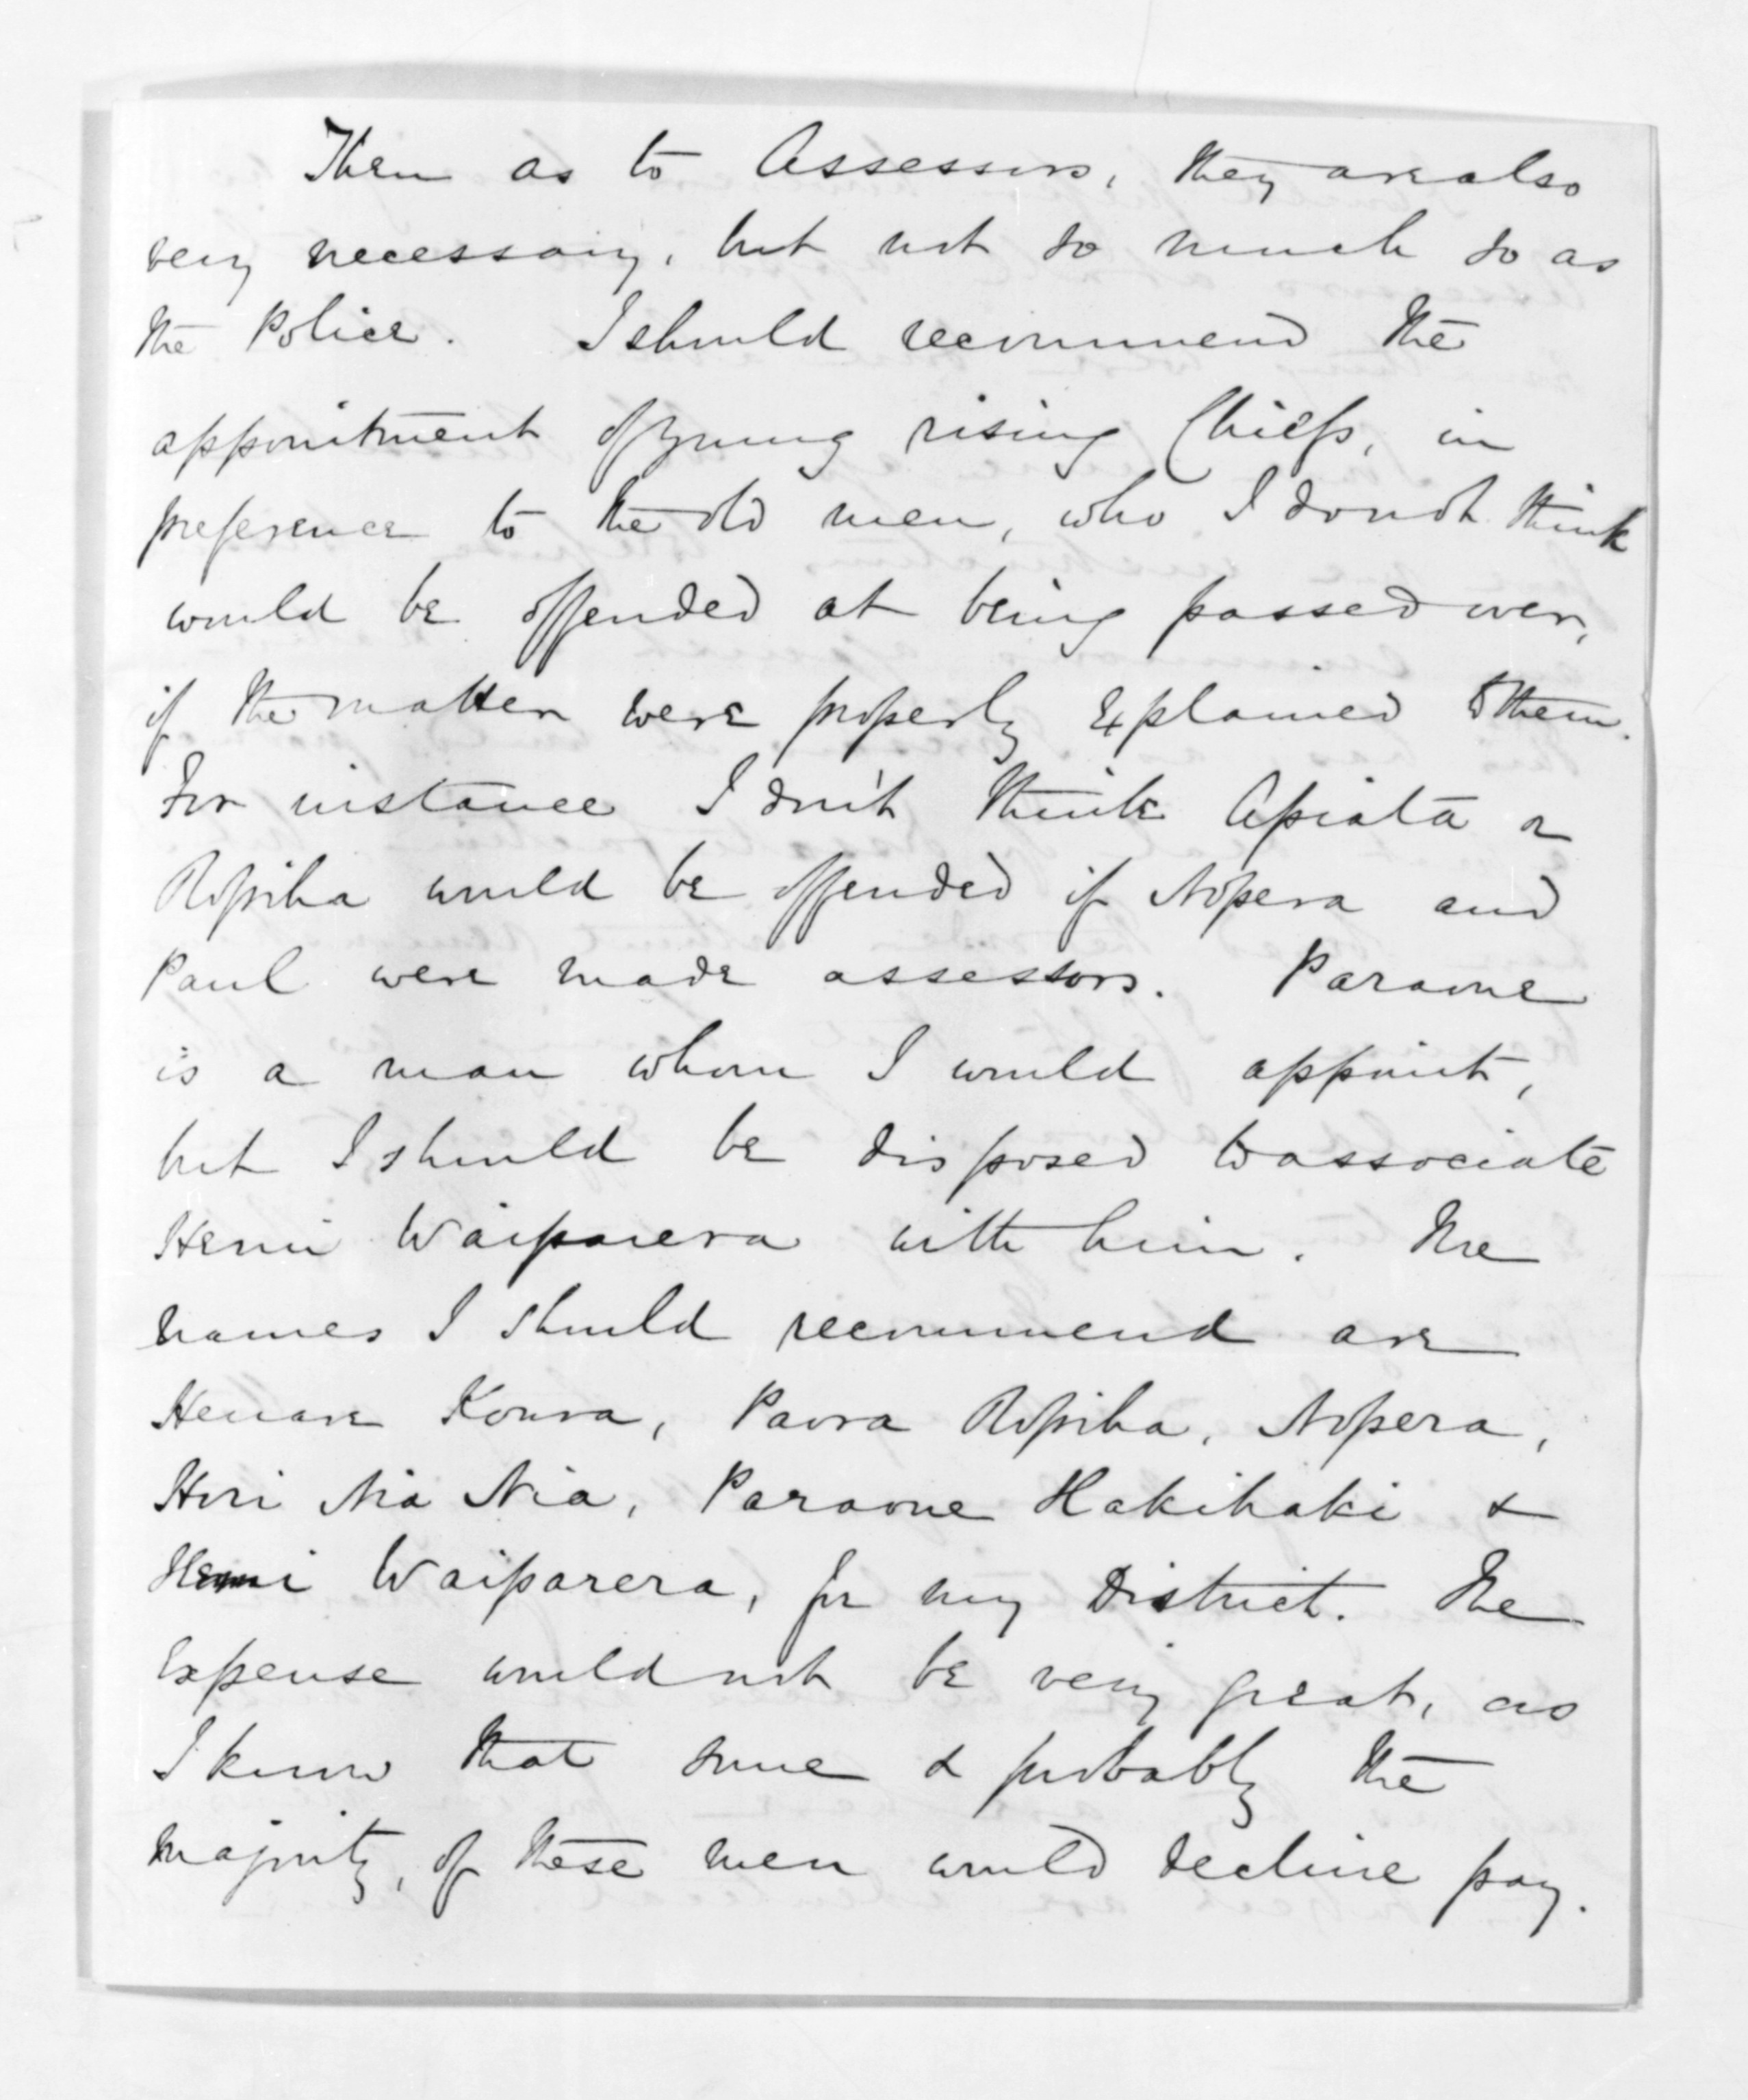 Then as to Assessors, they are also
very necessary, but not so much so as
the Police. I should recommend the
appointment of young rising Chiefs, in
preference to the old men, who I do not think
would be offended at being passed over,
if the matter were properly explained to them.
For instance I don't think Apiata or
Ropiha would be offended if Nopera and
Paul were made assessors. Paraone
is a man whom I would appoint,
but I should be disposed to associate
Hemi Waiparera with him. The
names I should recommend are
Henare Koura, Paora Ropiha, Nopera,
Hori Nia Nia, Paraone Hakihaki &
Hemi Waiparera, for my District. The
expense would not be very great, as
I know that some & probably the
majority, of these men would decline pay.